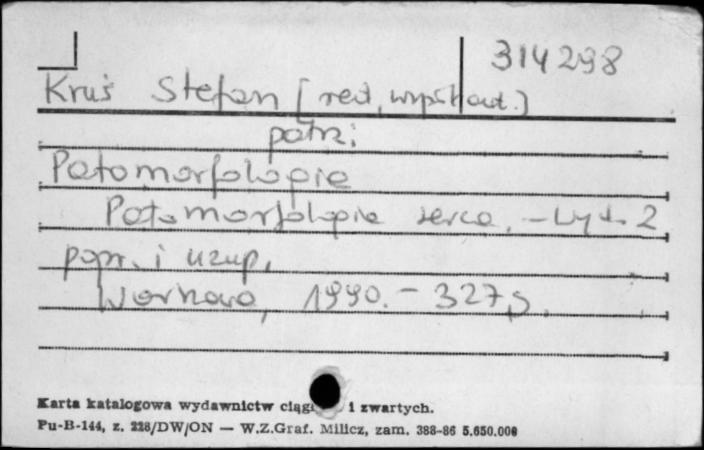 314298
Kruś Stefan [red., współaut.]
patrz:
Patomorfologia
Patomorfologia serca. - Wyd. 2
popr. i uzup.
Warszawa, 1990. - 327 s.
Karta katalogowa wydawnictw i zwartych.
Pu-B-144, z. 228/DW/ON — W.Z.Graf. Milicz, zam. 388-86 5.650.000